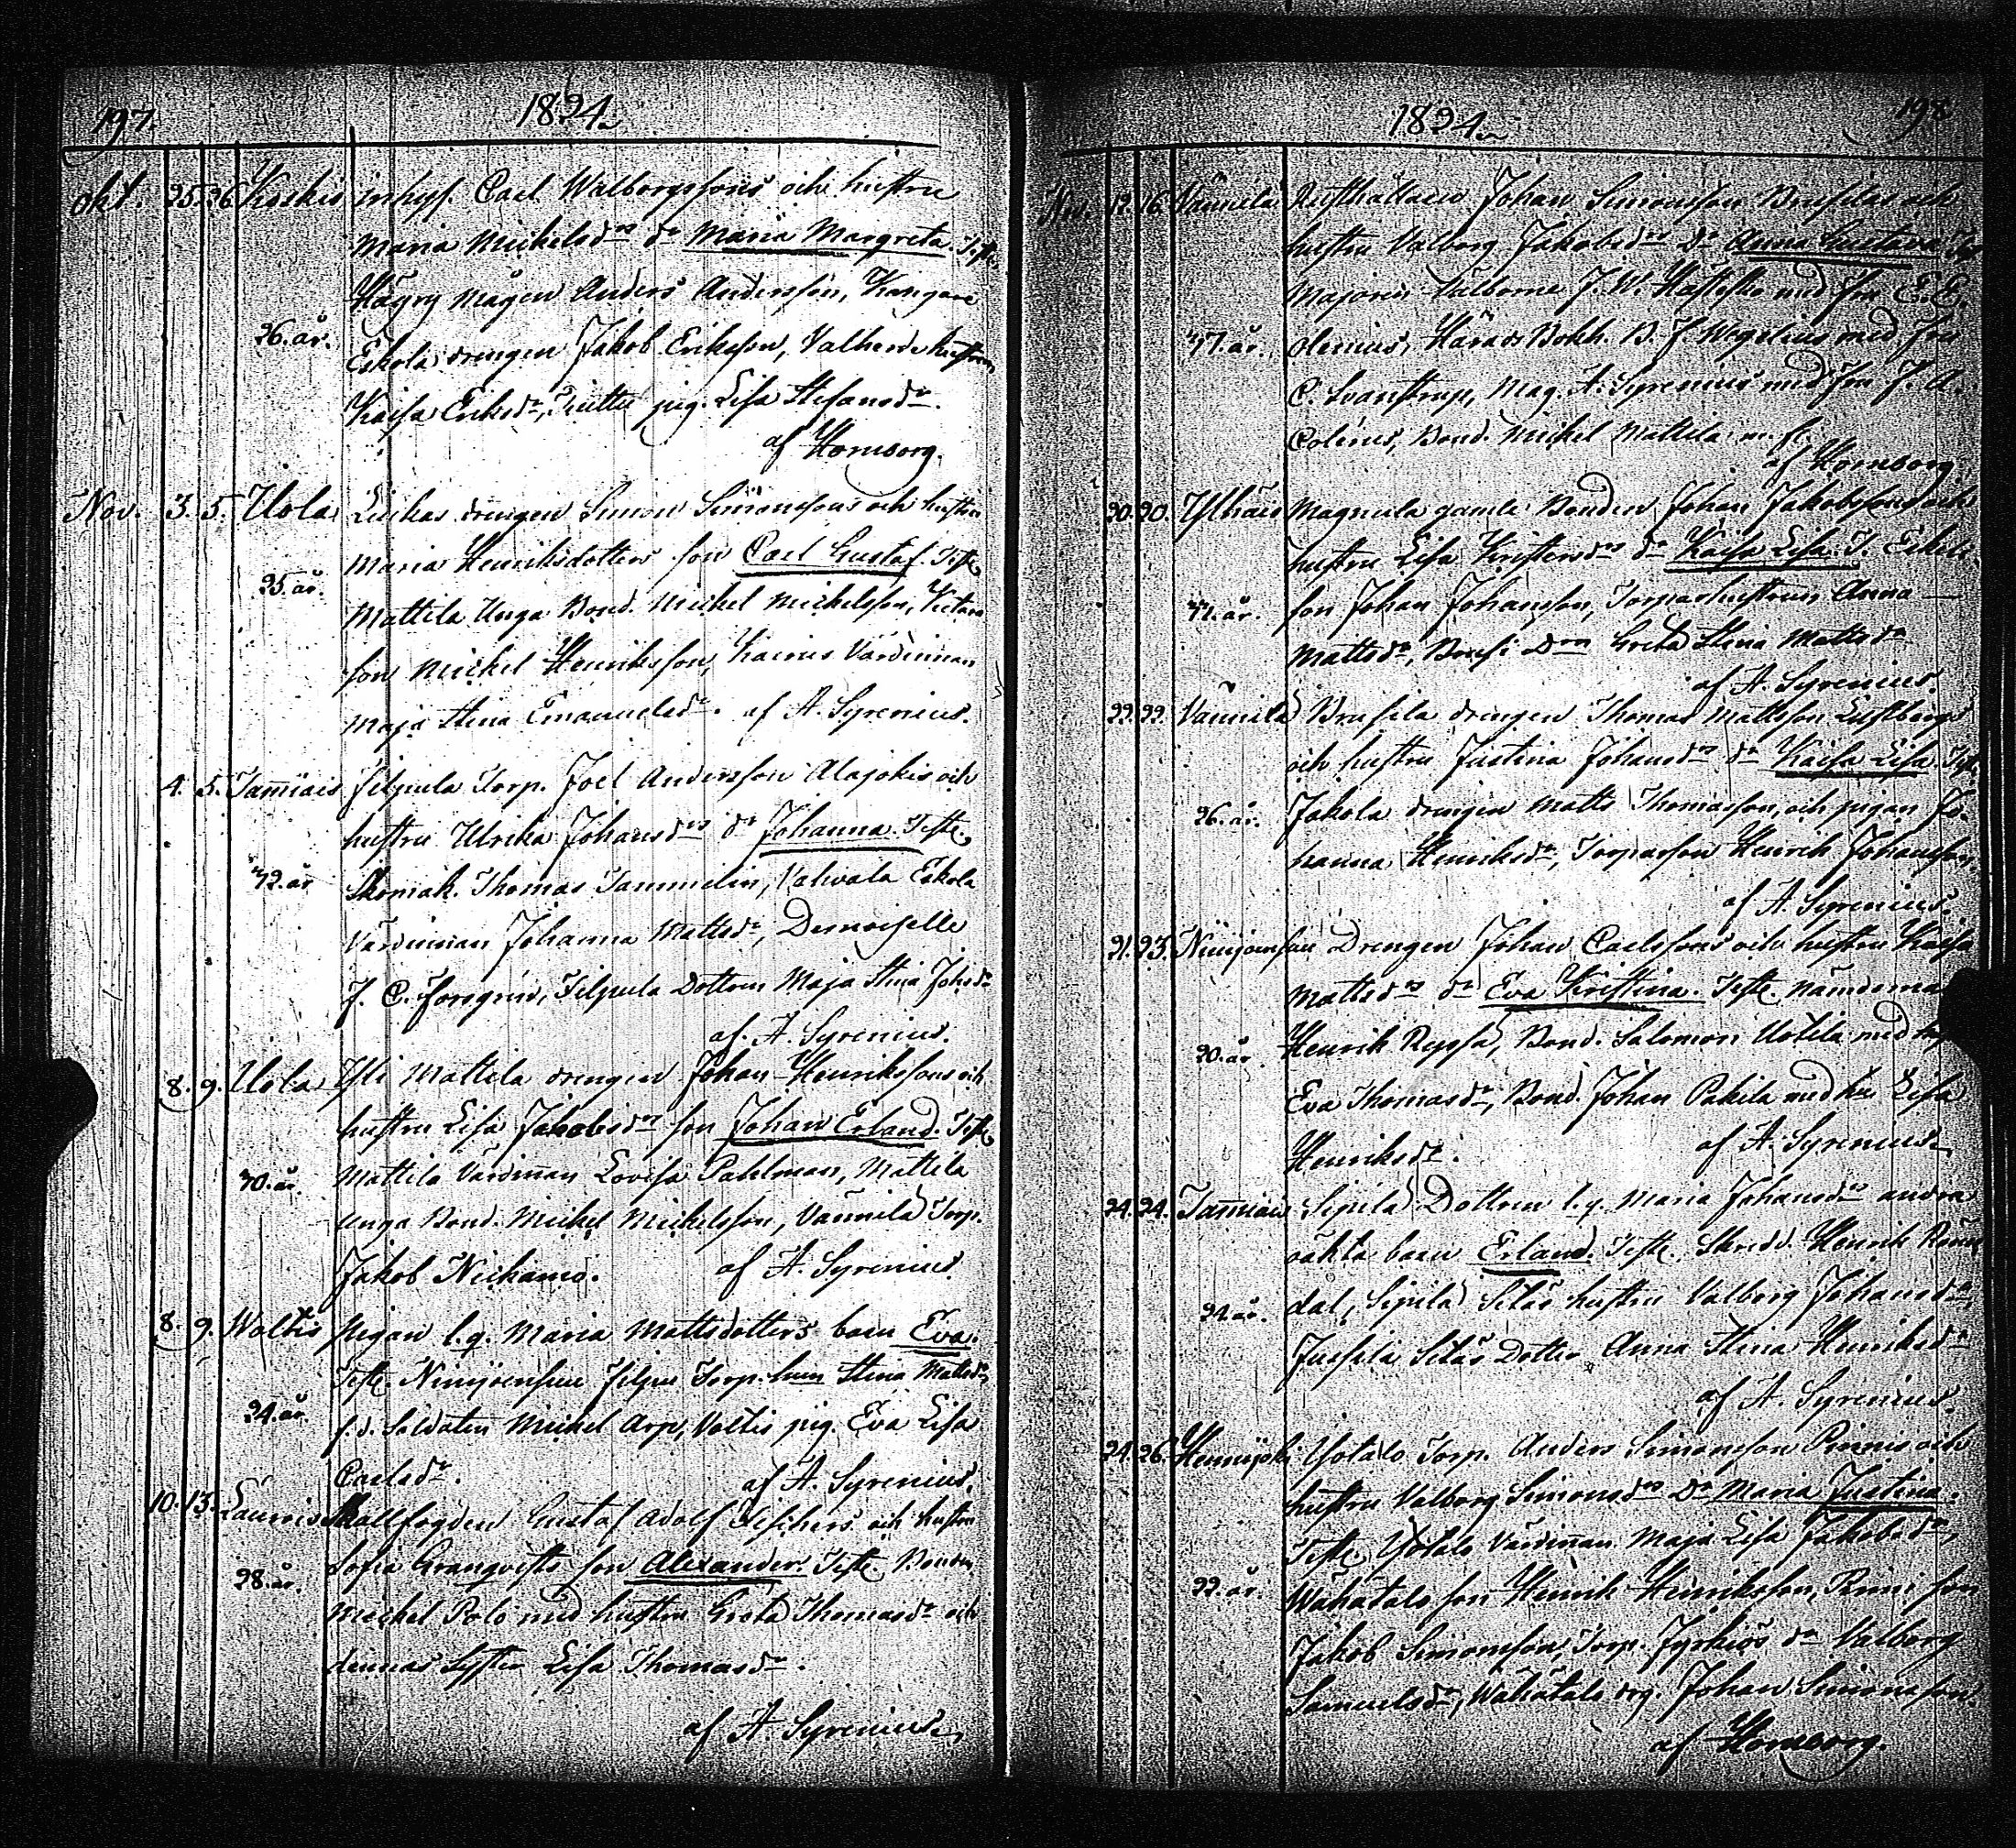 197.
1824.
Okt. 25. 26. Koskis inhys. Carl Walborgssons och hustru
Maria Mickelsdrs dr Maria Margreta. Test.
Hägry Mågen Anders Andersson, Kangare
26. år.
Eskola drengen Jakob Eriksson, hustrun
Kaisa Eriksdr, pig. Lisa Stefansdr.
af Hornborg.
Nov. 3. 5. Uola Liukas drengen Simon Simonssons och hustru
Maria Henriksdotters son Carl Gustaf. Test.
25. år.
Mattila Unga Bond. Mickel Mickelsson,
son Mickel Henriksson, Värdinnan
Maja Stina Emanuelsdr. af A. Syrenius.
4. 5. Tammiais Filpula Torp. Joel Andersson Alajokis och
hustru Ulrika Johansdrs dr Johanna. Test.
42. år
Skomak. Thomas Tammelin, Vahvala Eskola
Värdinnan Johanna Mattsdr, Demoiselle
J. C. Forsgren, Filpula Dottren Maja Stina Johsdr
af A. Syrenius.
8. 9. Uola Yli Mattila drengen Johan Henrikssons och
hustru Lisa Jakobsdrs son Johan Erland. Test.
40. år.
Mattila Värdinnan Lovisa Pahlman, Mattila
unga Bond. Mickel Mickelsson, Vännilä Torp.
Jakob Niekamo. af A. Syrenius.
8. 9. Woltis pigan l.q. Maria Mattsdotters barn Eva.
Test. Ninijoensuu Filpu Torp. hun Stina Mattsdr,
24. år.
f.d. Soldaten Mickel Arp, Voltis pig. Eva Lisa
Carlsdr. af A. Syrenius.
10. 13. Laurois Hallfogden Gustaf Adolf Fischers och hustru
Sofia Granqvists son Alexander. Test. Bonden
28. år.
Mickel Polo med hustru Greta Thomasdr och
dennas Syster Lisa Thomasdr.
af A. Syrenius.
198
1824.
Nov. 12. 16. Vännilä Rusthållaren Johan Simonsson Brusilas och
hustru Valborg Jakobsdrs Dr Anna Gustava. Test.
Majoren Välborne J. W. Hästesko med fru E. E.
47. år.
Olenius, Härads Bokh. B. J. Wegelius med fru
C. Svanstrup, Mag. A. Syrenius med fru J. A.
Polenus, Bond. Mickel Mattila m. fl.
af Hornborg
20. 20. Ylhäis Magnula gamle Bonden Johan Jakobssons och
hustru Lisa Kristersdrs dr Kaisa Lisa. T. Eskola
41. år.
son Johan Johansson, Torparhustrun Anna
Mattsdr, Greta Stina Mattsdr
af A. Syrenius.
22. 22. Vännilä Brusila drengen Thomas Mattsson Lustbergs
och hustru Justina Johansdrs dr Kaisa Lisa. Test.
26. år.
Jakola drengen Matts Thomasson, och pigan Jo-
hanna Henriksdr, Torparson Henrik Johansson,
af A. Syrenius.
21. 23. Ninijoensuu Drengen Johan Carlssons och hustru Kaisa
Mattsdrs dr Eva Kristina. Test. Nämdeman
30. år
Henrik Ryssä, Bond. Salomon Uotila med
Eva Thomasdr, Bond. Johan Pakila med hu. Lisa
Henriksdr. af A. Syrenius.
24. 24. Tammiais Sipilä Dottren l.q. Maria Johansdrs andra
oäkta barn Erland. Test. Skredd. Henrik
24. år.
dal, Sipilä Sitås hustru Valborg Johansdr,
Jussila Sitås Dotter Anna Stina Henriksdr
af A. Syrenius.
24. 26. Hennijoki Yötalo Torp. Anders Simonsson Pinnis och
hustru Valborg Simonsdrs Dr Maria Justina.
Test. Yötalo Värdinnan Maja Lisa Jakobsdr,
22. år.
Wähätalo son Henrik Henriksson, Pinni son
Jakob Simonsson, Torp. Jyrkiös dr Valborg
Samuelsdr, Wähätalo drg. Johan Simonsson.
af Hornborg.